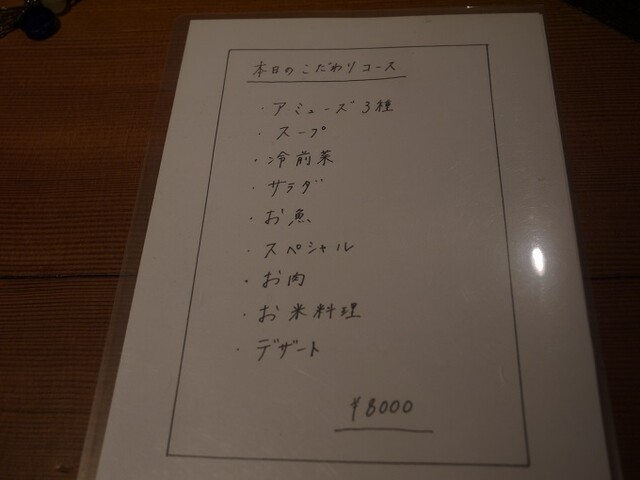 本日のこだわりコース
・アミューズ3種
・スープ
・冷前菜
・サラダ
・お魚
・スペシャル
・お肉
・お米料理
・デザート
¥8000